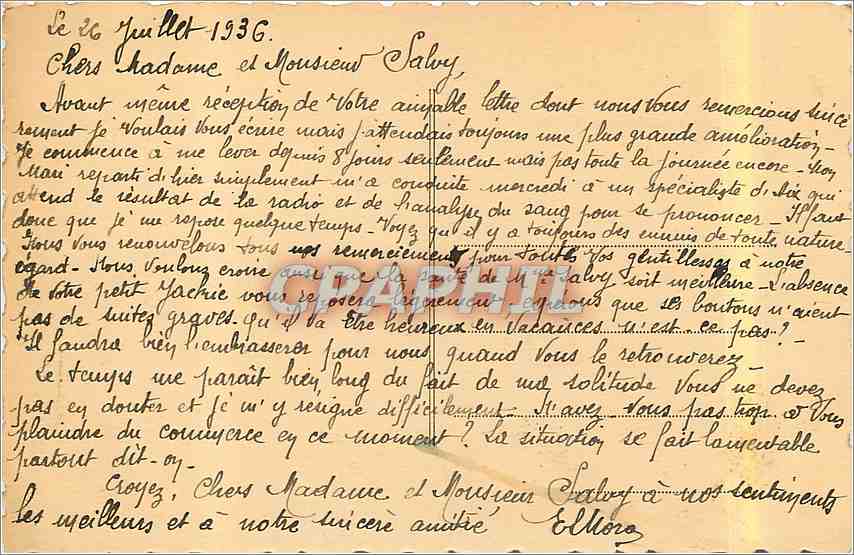 Le 26 Juillet 1936.
Chers Madame et Monsieur Salvy,
Avant même réception de Votre aimable lettre dont nous Vous remercions sincè
rement je Voulais Vous écrire mais j'attendais toujours une plus grande amélioration -
Je commence à me lever depuis 8 jours seulement mais pas toute la journée encore - Mon
Mari reparti d'hier simplement m'a conduite mercredi à un spécialiste d'Aix qui
attend le résultat de la radio et de l'analyse du sang pour se prononcer - Il faut
donc que je me repose quelque temps - Voyez qu'il y a toujours des ennuis de toute nature -
Nous Vous renouvelons tous nos remerciements pour toutes Vos gentillesses à notre
égard - Nous Voulons croire aussi que la santé de Mme Salvy soit meilleure - L'absence
de Votre petit Jackie vous reposera légèrement espérons que ses boutons n'aient
pas de suites graves - qu'il va être heureux en vacances n'est-ce pas ? -
Il faudra bien l'embrasser pour nous quand Vous le retrouverez -
Le temps me paraît bien long du fait de ma solitude Vous ne devez
pas en douter et je m'y résigne difficilement - N'avez-Vous pas trop à Vous
plaindre du commerce en ce moment ? La situation se fait lamentable
partout dit-on -
Croyez, Chers Madame et Monsieur Salvy à nos sentiments
les meilleurs et à notre sincère amitié
CPAPHIL